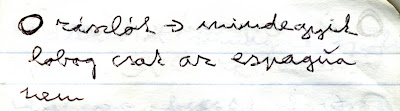 O zászlók → mindegyik
lobog csak az espagña
nem